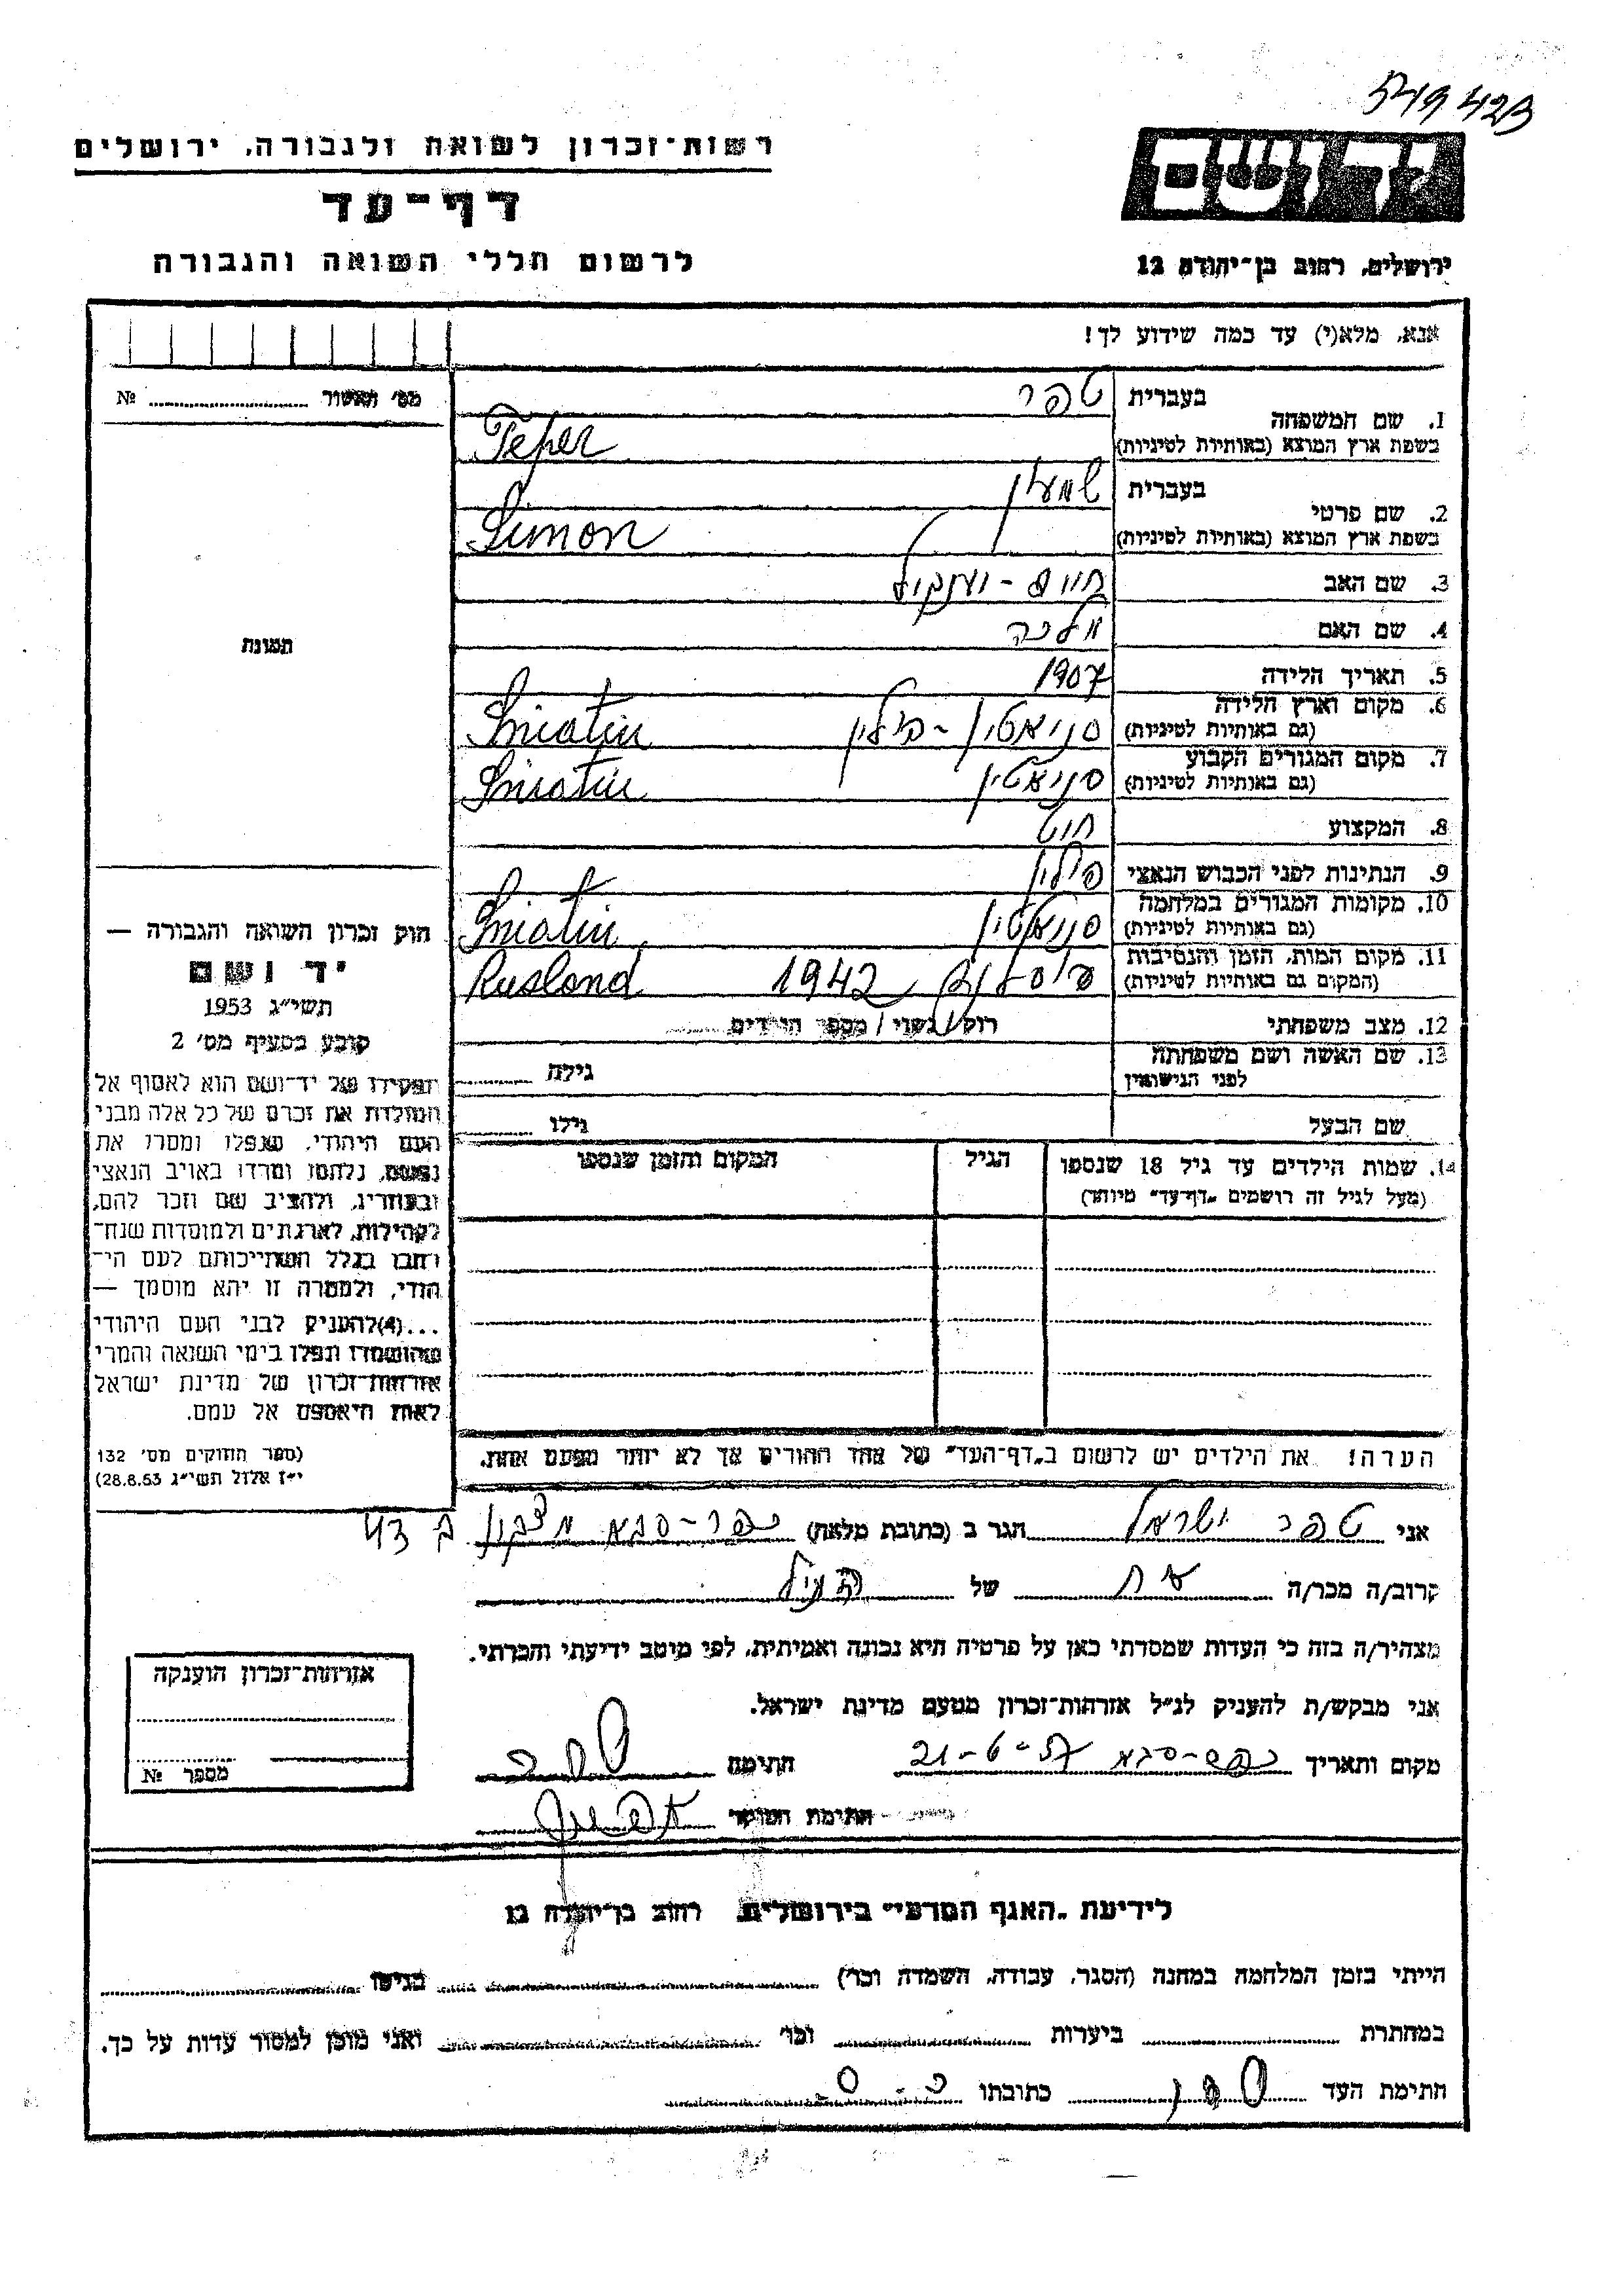 549423
רשות־זכרון לשואה ולגבורה, ירושלים
דף־עד
לרשום חללי השואה והגבורה
יד ושם
ירושלים, רחוב בן־יהודה 12
אנא, מלא(י) עד כמה שידוע לך!
מס' תאשור № 
1. שם המשפחה
בעברית טפר
בשפת ארץ המוצא (באותיות לטיניות) Teper
2. שם פרטי
בעברית שמעון
בשפת ארץ המוצא (באותיות לטיניות) Simon
3. שם האב חיים - יענקול
4. שם האם מלכה
5. תאריך הלידה 1907
6. מקום וארץ הלידה
(גם באותיות לטיניות) סניאטין - פולין Sniatin
7. מקום המגורים הקבוע
(גם באותיות לטיניות) סניאטין Sniatin
8. המקצוע חיט
9. הנתינות לפני הכבוש הנאצי פולין
10. מקומות המגורים במלחמה
(גם באותיות לטיניות) סניאטין Sniatin
11. מקום המות, הזמן והנסיבות
(המקום גם באותיות לטיניות) 1942 Rusland
12. מצב משפחתי רוק/נשוי/מספר הילדים
13. שם האשה ושם משפחתה
לפני הנישואין גילה
שם הבעל גילו
14. שמות הילדים עד גיל 18 שנספו
(מעל לגיל זה רושמים "דף־עד" מיוחד)
הגיל
המקום והזמן שנספו
הערה! את הילדים יש לרשום ב"דף־העד" של אחד ההורים אך לא יותר מפעם אחת.
תמונה
חוק זכרון השואה והגבורה —
יד ושם
תשי"ג 1953
קובע בסעיף מס' 2
תפקידו של יד־ושם הוא לאסוף אל
המולדת את זכרם של כל אלה מבני
העם היהודי, שנפלו ומסרו את
נפשם, נלחמו ומרדו באויב הנאצי
ובעוזריו, ולהציב שם וזכר להם,
לקהילות, לארגונים ולמוסדות שנח־
רבו בגלל השתייכותם לעם הי־
הודי, ולמטרה זו יהא מוסמך —
...(4)להעניק לבני העם היהודי
שהושמדו ונפלו בימי השואה והמרי
אזרחות־זכרון של מדינת ישראל
לאות היאספם אל עמם.
(ספר החוקים מס' 132
י"ז אלול תשי"ג 28.8.53)
אני טפר ישראל הגר ב (כתובת מלאה) כפר-סבא 43
קרוב/ה מכר/ה אח של הנ"ל
מצהיר/ה בזה כי העדות שמסרתי כאן על פרטיה היא נכונה ואמיתית, לפי מיטב ידיעתי והכרתי.
אני מבקש/ת להעניק לנ"ל אזרחות־זכרון מטעם מדינת ישראל.
מקום ותאריך כפר-סבא 21-6-57 חתימה טפר
חתימת הפוקד
אזרחות־זכרון הוענקה
מספר №
לידיעת "האגף המדעי" בירושלים, רחוב בן־יהודה 12
הייתי בזמן המלחמה במחנה (הסגר, עבודה, השמדה וכו') בגיטו
במחתרת ביערות וכו' ואני מוכן למסור עדות על כך.
חתימת העד טפר כתובתו כ.ס.